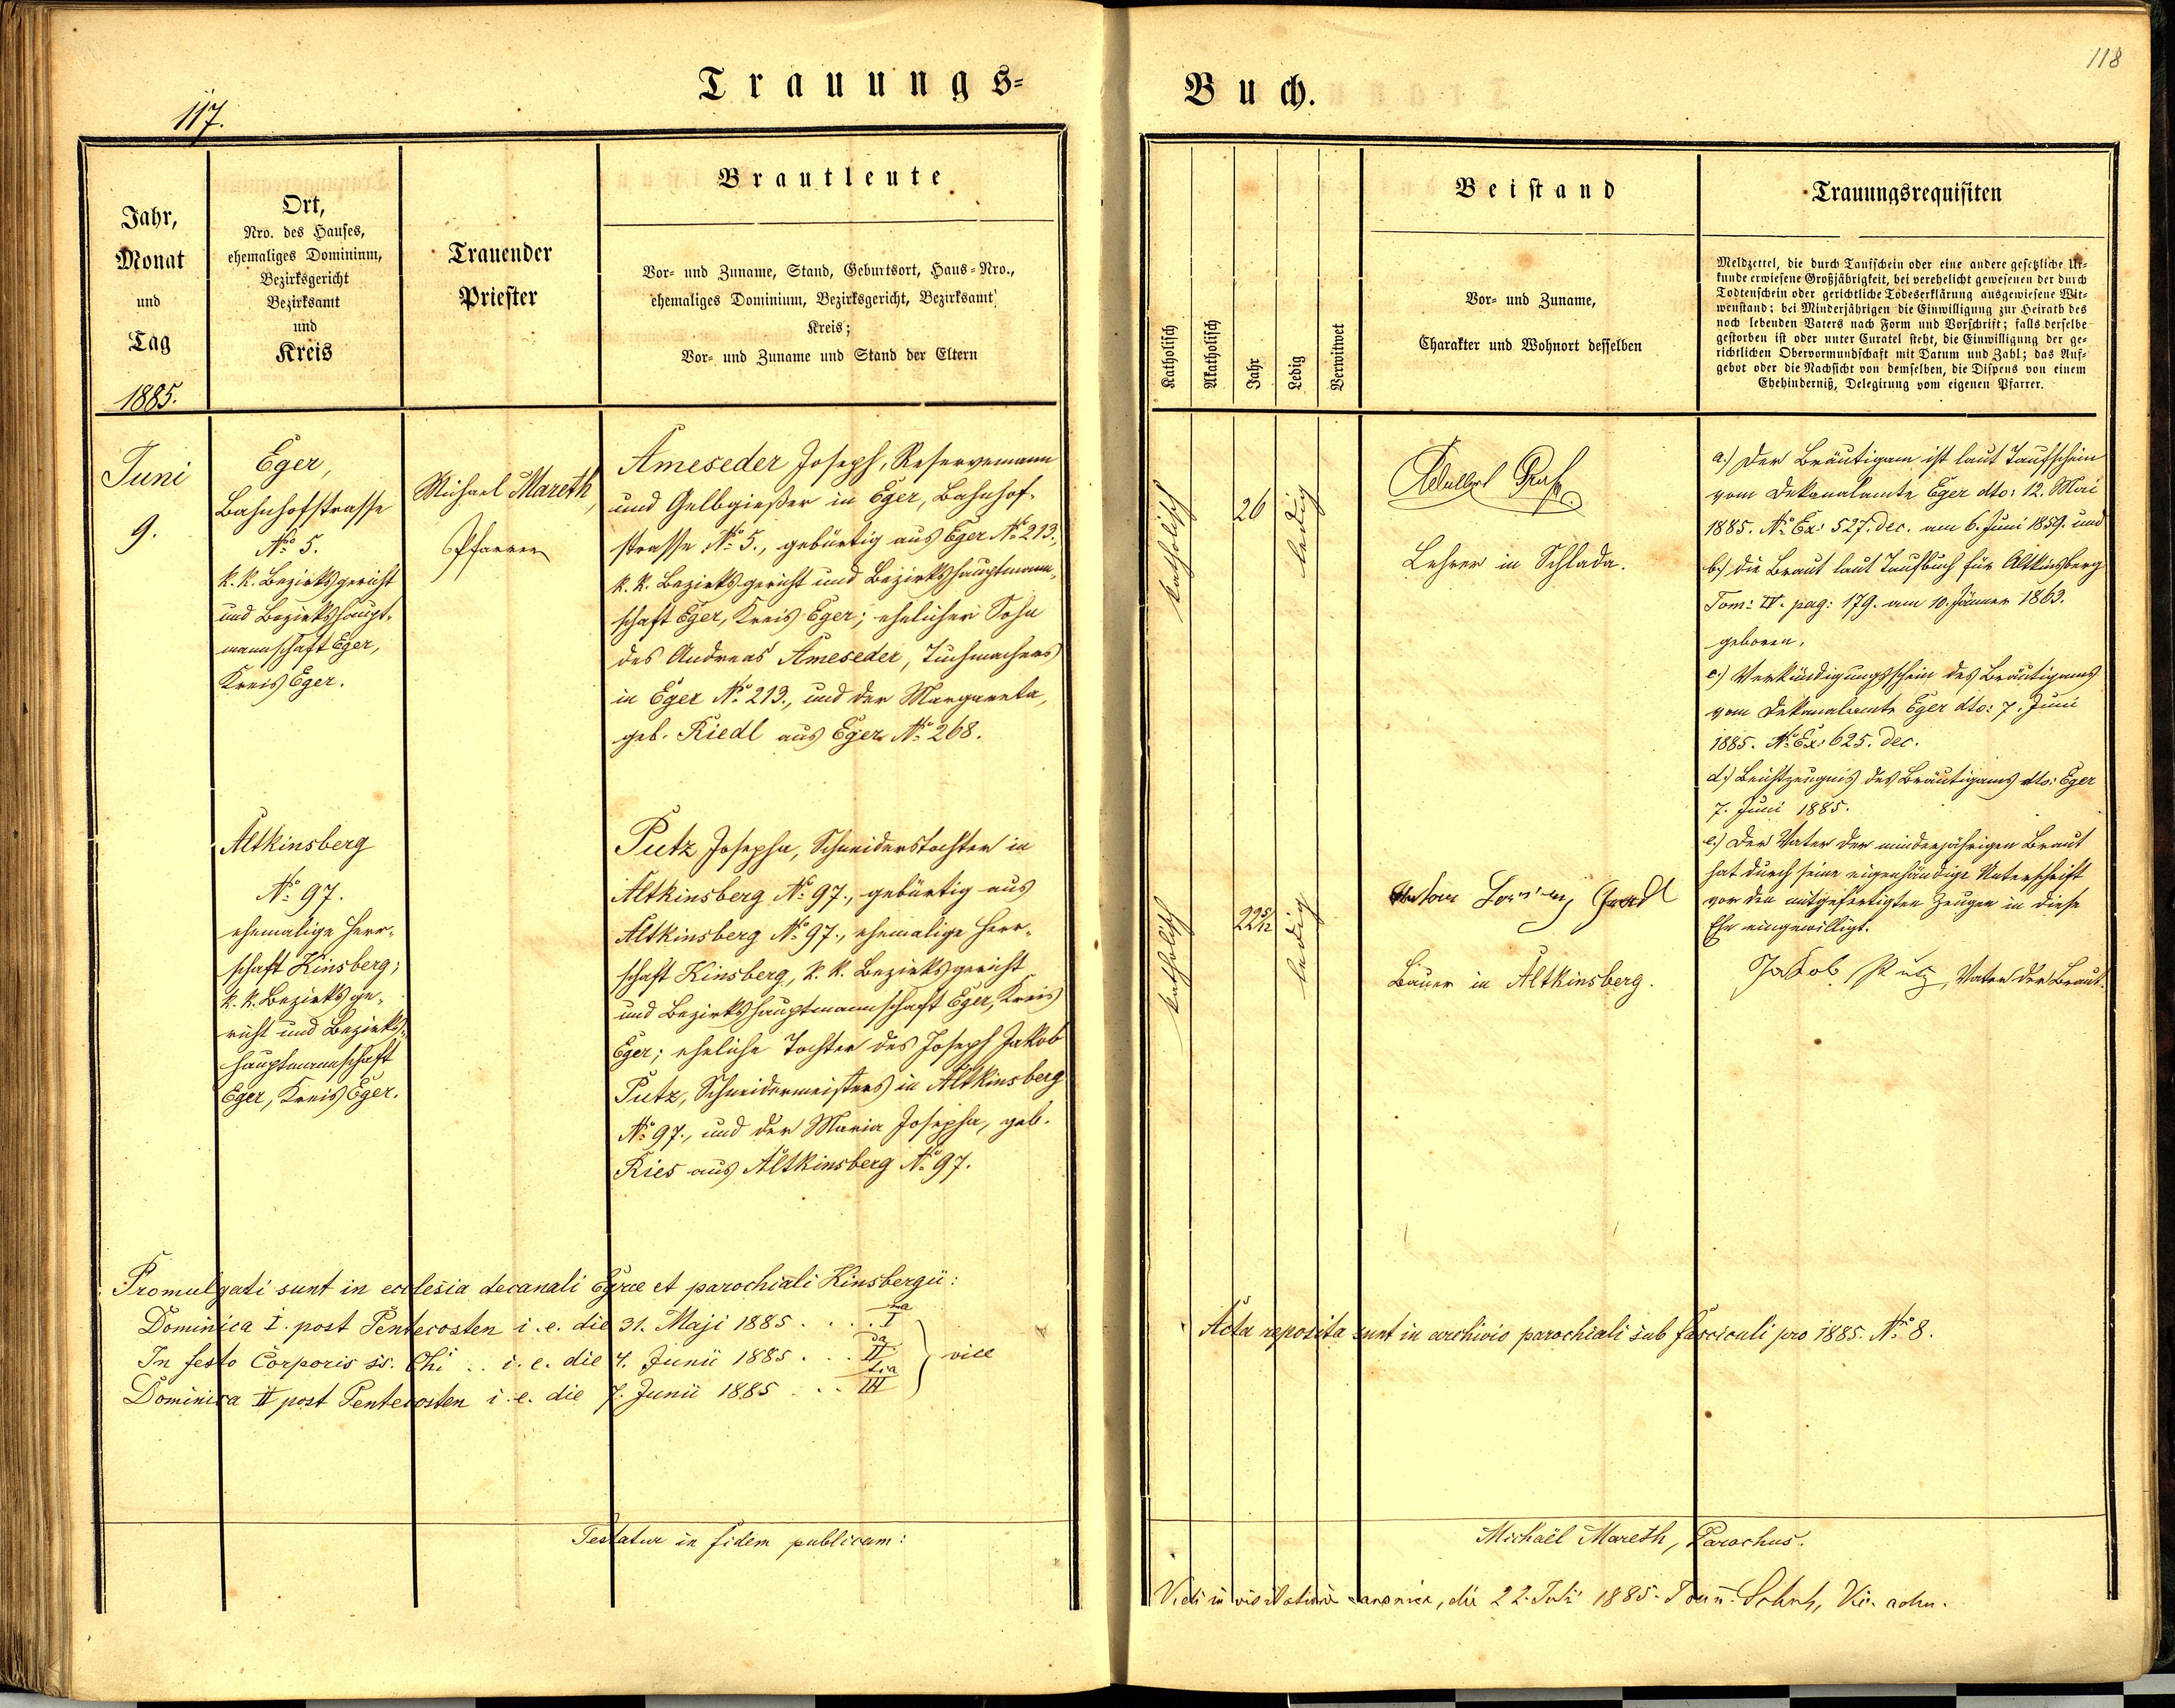 117.
Trauungs=
Jahr,
Monat
und
Tag
1885.
Ort,
Nro. des Hauses,
ehemaliges Dominium,
Bezirksgericht
Bezirksamt
und
Kreis
Trauender
Priester
Brautleute
Vor- und Zuname, Stand, Geburtsort, Haus-Nro.,
ehemaliges Dominium, Bezirksgericht, Bezirksamt,
Kreis;
Vor- und Zuname und Stand der Eltern
Juni
9.
Eger,
Bahnhofstrasse
№ 5.
k. k. Bezirksgericht
und Bezirkshaupt-
mannschaft Eger,
Kreis Eger.
Michael Mareth,
Pfarrer
Ameseder Joseph, Reservemann
und Gelbgießer in Eger, Bahnhof-
strasse № 5., gebürtig aus Eger № 213.,
k. k. Bezirksgericht und Bezirkshauptmann-
schaft Eger, Kreis Eger; ehelicher Sohn
des Andreas Ameseder, Tuchmachers
in Eger № 213., und der Margareta,
geb. Riedl aus Eger № 268.
Altkinsberg
№ 97.
ehemalige Herr-
schaft Kinsberg;
k. k. Bezirksge-
richt und Bezirks-
hauptmannschaft
Eger, Kreis Eger.
Putz Josepha, Schneiderstochter in
Altkinsberg № 97., gebürtig aus
Altkinsberg № 97., ehemalige Herr-
schaft Kinsberg, k. k. Bezirksgericht
und Bezirkshauptmannschaft Eger, Kreis
Eger; eheliche Tochter des Joseph Jakob
Putz, Schneidermeisters in Altkinsberg
№ 97., und der Maria Josepha, geb.
Ries aus Altkinsberg № 97.
Promulgati sunt in ecclesia decanali Egrae et parochiali Kinsbergii:
Dominica I. post Pentecosten i. e. die 31. Maji 1885 . . . . I ma
In festo Corporis ss. Chi . . i. e. die 4. Junii 1885 . . . II da } vice
Dominica II post Pentecosten i. e. die 7. Junii 1885 . . . III tia
Testatur in fidem publicam:
118
Buch.
Katholisch
Akatholisch
Jahr
Ledig
Verwitwet
Beistand
Vor- und Zuname,
Charakter und Wohnort desselben
Trauungsrequisiten
Meldzettel, die durch Taufschein oder eine andere gesetzliche Ur-
kunde erwiesene Großjährigkeit, bei verehelicht gewesenen der durch
Todtenschein oder gerichtliche Todeserklärung ausgewiesene Wit-
wenstand; bei Minderjährigen die Einwilligung zur Heirath des
noch lebenden Vaters nach Form und Vorschrift; falls derselbe
gestorben ist oder unter Curatel steht, die Einwilligung der ge-
richtlichen Obervormundschaft mit Datum und Zahl; das Auf-
gebot oder die Nachsicht von demselben, die Dispens von einem
Ehehinderniß, Delegirung vom eigenen Pfarrer.
katholisch
26
ledig
Adalbert
Lehrer in Schlada.
a.) Der Bräutigam ist laut Taufschein
vom Dekanalamte Eger dto: 12. Mai
1885. № Ex: 527. dec. am 6. Juni 1859. und
b.) die Braut laut Taufbuch für Altkinsberg
Tom: IV. pag: 179. am 10. Jänner 1863.
geboren.
c.) Verkündigungsschein des Bräutigams
vom Dekanalamte Eger dto: 7. Juni
1885. № Ex: 625. dec.
d.) Beichtzeugnis des Bräutigams dto: Eger
7. Juni 1885.
e.) Der Vater der minderjährigen Braut
hat durch seine eigenhändige Unterschrift
vor den mitgefertigten Zeugen in diese
Ehe eingewilligt.
Jakob Putz, Vater der Braut.
katholisch
22 5/12
ledig
Bauer in Altkinsberg.
Acta reposita sunt in archivio parochiali sub fasciculi pro 1885. № 8.
Michaël Mareth, Parochus.
Vidi in visitatione canonica, die 22. Juli 1885.